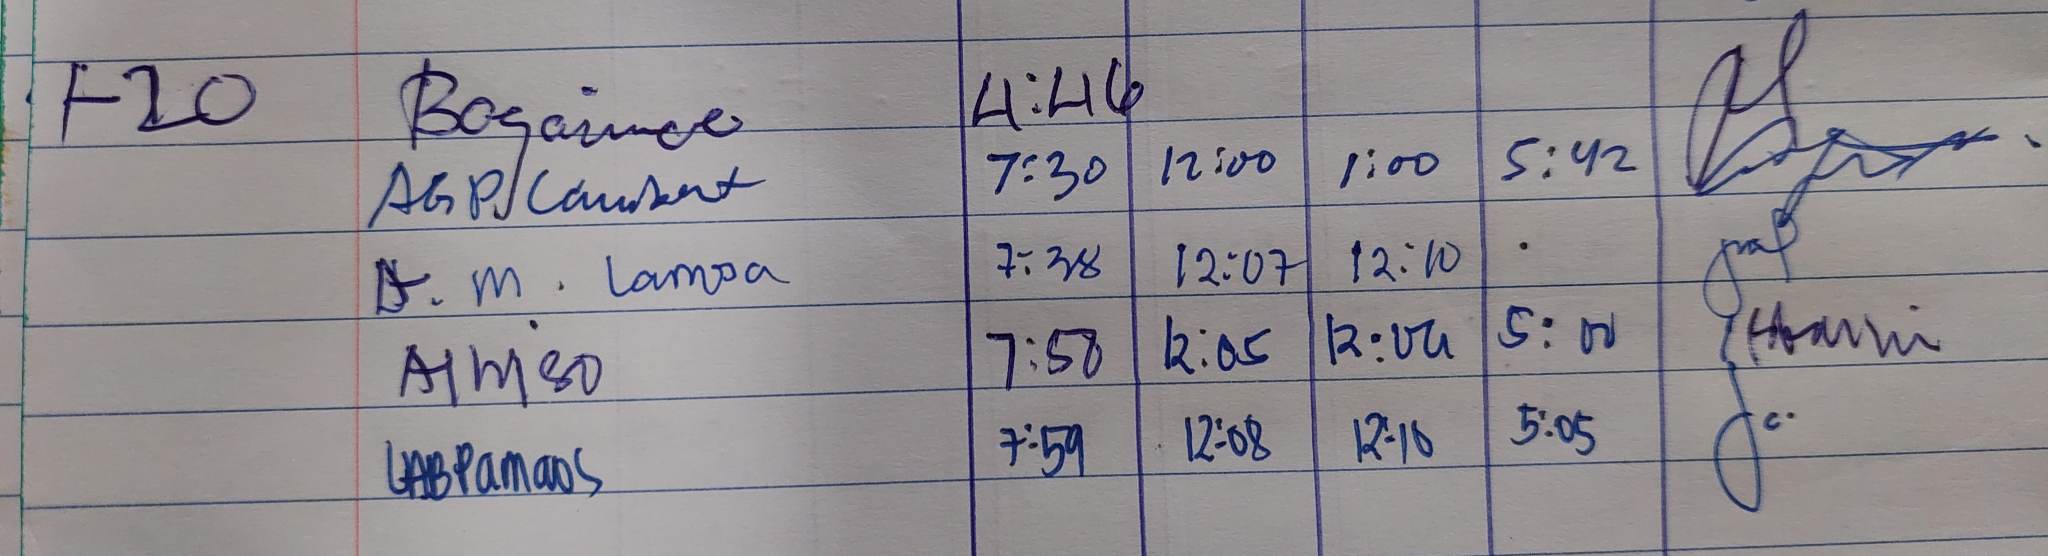 F20 Bogaimee 4:46
AGP/Cambert 7:30 12:00 1:00 5:42
A. M. Lamoa 7:38 12:07 12:10 .
7:58 12:05 12:06 5:00
LABPamaos 7:59 12:08 12:10 5:05